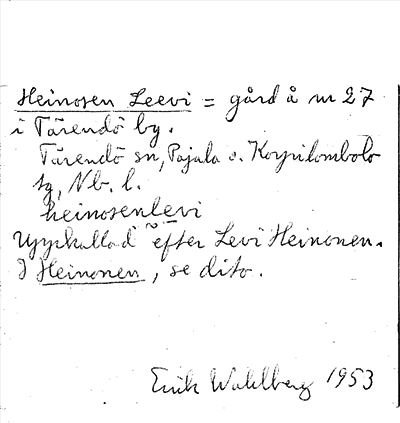 Heinosen Leevi = gård å nr 27
i Tärendö by.
Tärendö sn, Pajala o. Korpilombolo
tg, Nb. l.
heinosenlevi
Uppkallad efter Levi Heinonen.
J Heinonen, se dito.
Erik Wahlberg 1953